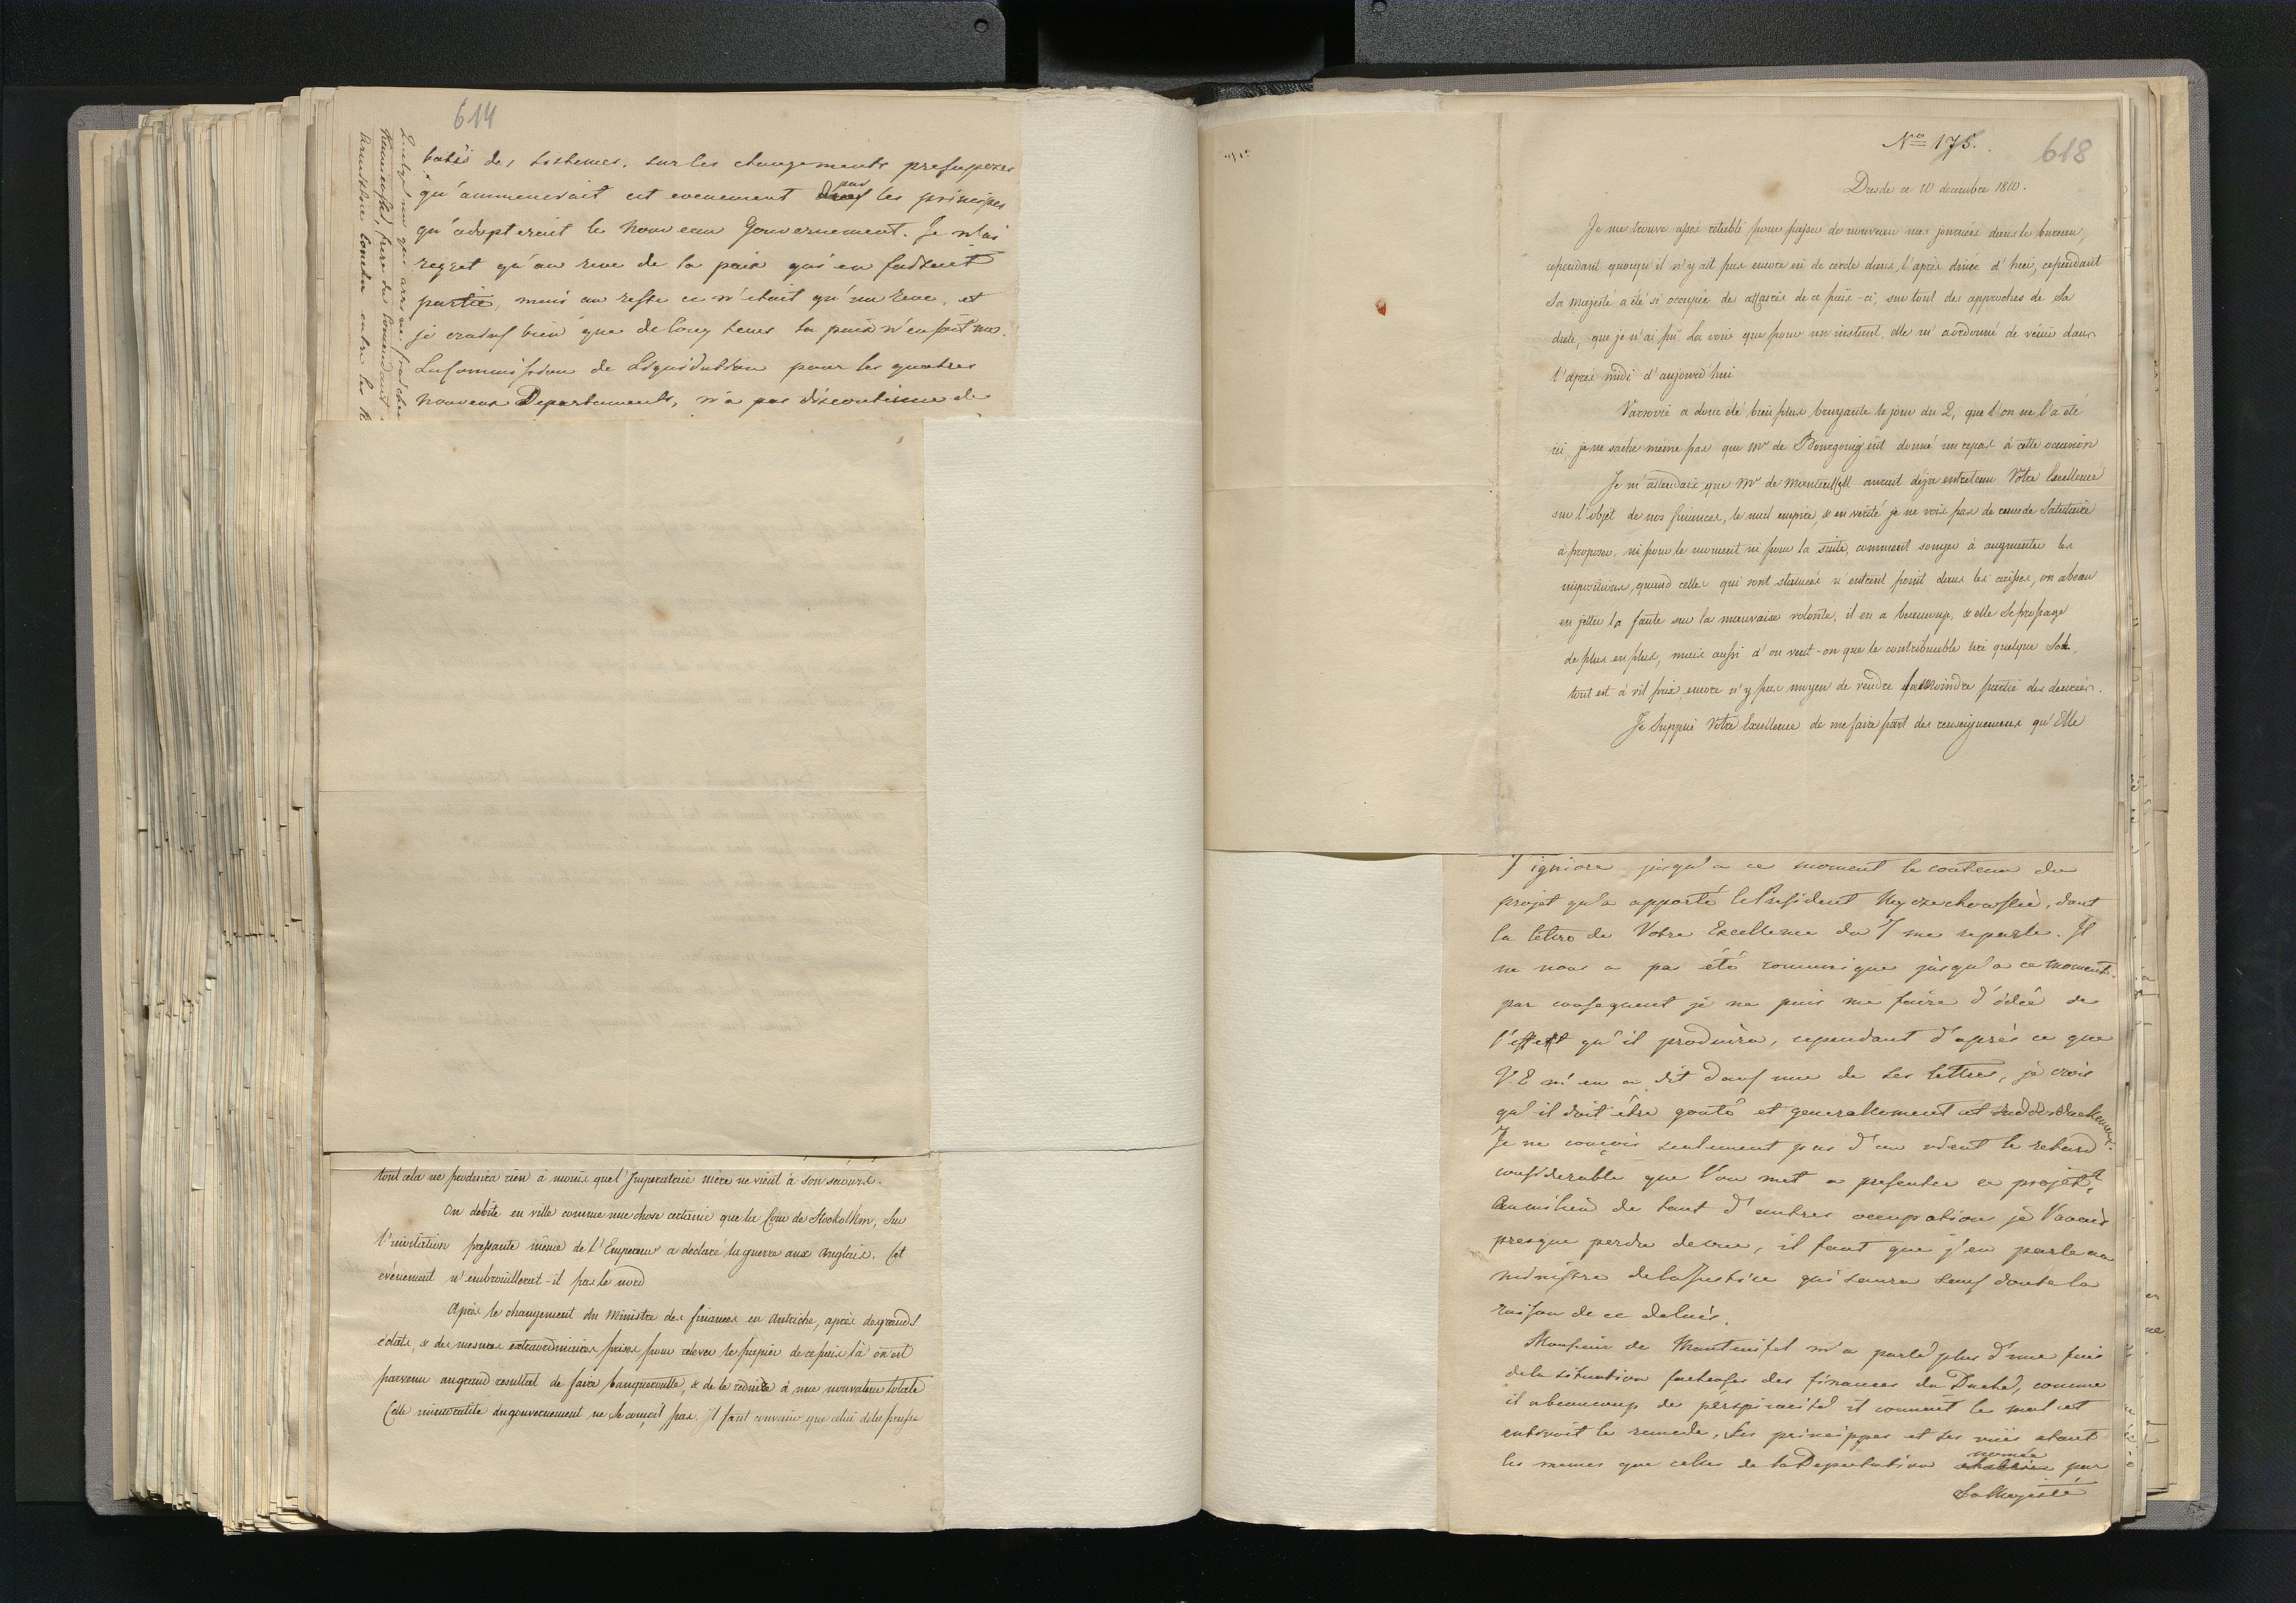 614
batis des sistemes, sur les changements presuposes
qu'ammenerait cet evenement par les principes
qu'adopterait le nouveau Gouvernement. Je n'ai
regret qu'au reve de la paix qui en faisait
partie, mais au reste ce n'etait qu'un reve, et
je crains bien que de long tems la paix n'en soit un.
La Commission de Liquidation pour les quatres
nouveaux Departements, n'a pas discontinué de
tout cela ne produira rien à moins que l'Imperatrice mère ne vient à son secours.
On debite en ville comme une chose certaine que la Cour de Stockolhm, sur
l'invitation pressante même de l'Empereur a declaré la guerre aux Anglais. Cet
evénement n'embrouillerat-il pas le nord
Après le changement du Ministre des finances en Autriche, après de grands
éclats, & des mesures extraordinaires prises pour relever le papier de ce païs là on est
parvenu au grand resultat de faire banqueroutte, & de le reduire à une nonvaleur totale
Cette immoralité du gouvernement ne se conçoit pas. Il faut convenir que celui de la prusse
No 175.
618
Dresde ce 10 decembre 1810.
Je me trouve assés retabli pour passer de nouveau mes journées dans le bureau,
cependant quoiqu'il n'y ait pas encore eü de cercle dans l'après dinée d'hier, cependant
Sa Majesté a été si occupée des affaires de ce païs-ci, sur tout des approches de la
diete, que je n'ai pû La voir que pour un instant, elle m'a ordonné de venir dans
l'après midi d'aujourd'hui
Varsovie a donc été bien plus bruyante le jour du 2, que l'on ne l'a été
ici, je ne sache même pas que Mr de Bourgoing eüt donné un repas à cette occasion
Je m'attendais que Mr de Manteuffell aurait déja entretenu Votre Excellence
sur l'objet de nos finances, le mal empire, & en verité je ne vois pas de remede Salutaire
à proposer, ni pour le moment ni pour la suite, comment songer à augmenter les
impositions, quand celles qui sont statuées n'entrent point dans les caisses, on a beau
en jetter la faute sur la mauvaise volonté, il en a beaucoup, & elle se propage
de plus en plus, mais aussi d'ou veut-on que le contribuable tire quelque Sols,
tout est à vil prix encore n'y pas moyen de vendre la moindre partie des denrées.
Je Supplie Votre Excellence de me faire part des renseignemens qu'Elle
J'ignore jusqu'a ce moment le contenu du
projet qu'a apporté le President, dont
la lettre de Votre Excellence du 7 me reparle. Il
ne nous a pas été comunique jusqu'a ce moment.
par consequent je ne puis me faire d'idée de
l'effet qu'il produira, cependant d'après ce que
V.E m'en a dit dans une de ses lettres, je crois
qu'il doit être gouté et generallement et
Je ne conçois seulement pas d'ou vient le retard
considerable que l'on met a presenter ce projet,
au milieu de tant d'autres occupations je l'avais
presque perdu de vue, il faut que j'en parle au
ministre de la Justice qui saura sans doute la
raison de ce delais.
Monsieur de Manteufel m'a parlé plus d'une fois
de la situation facheuse des finances du Duché, comme
il a beaucoup de perspicacité il connait le mal et
entrevoit le remede. Ses principes et ses vues etant
les memes que celles de la Deputation nomée par
Sa Majesté